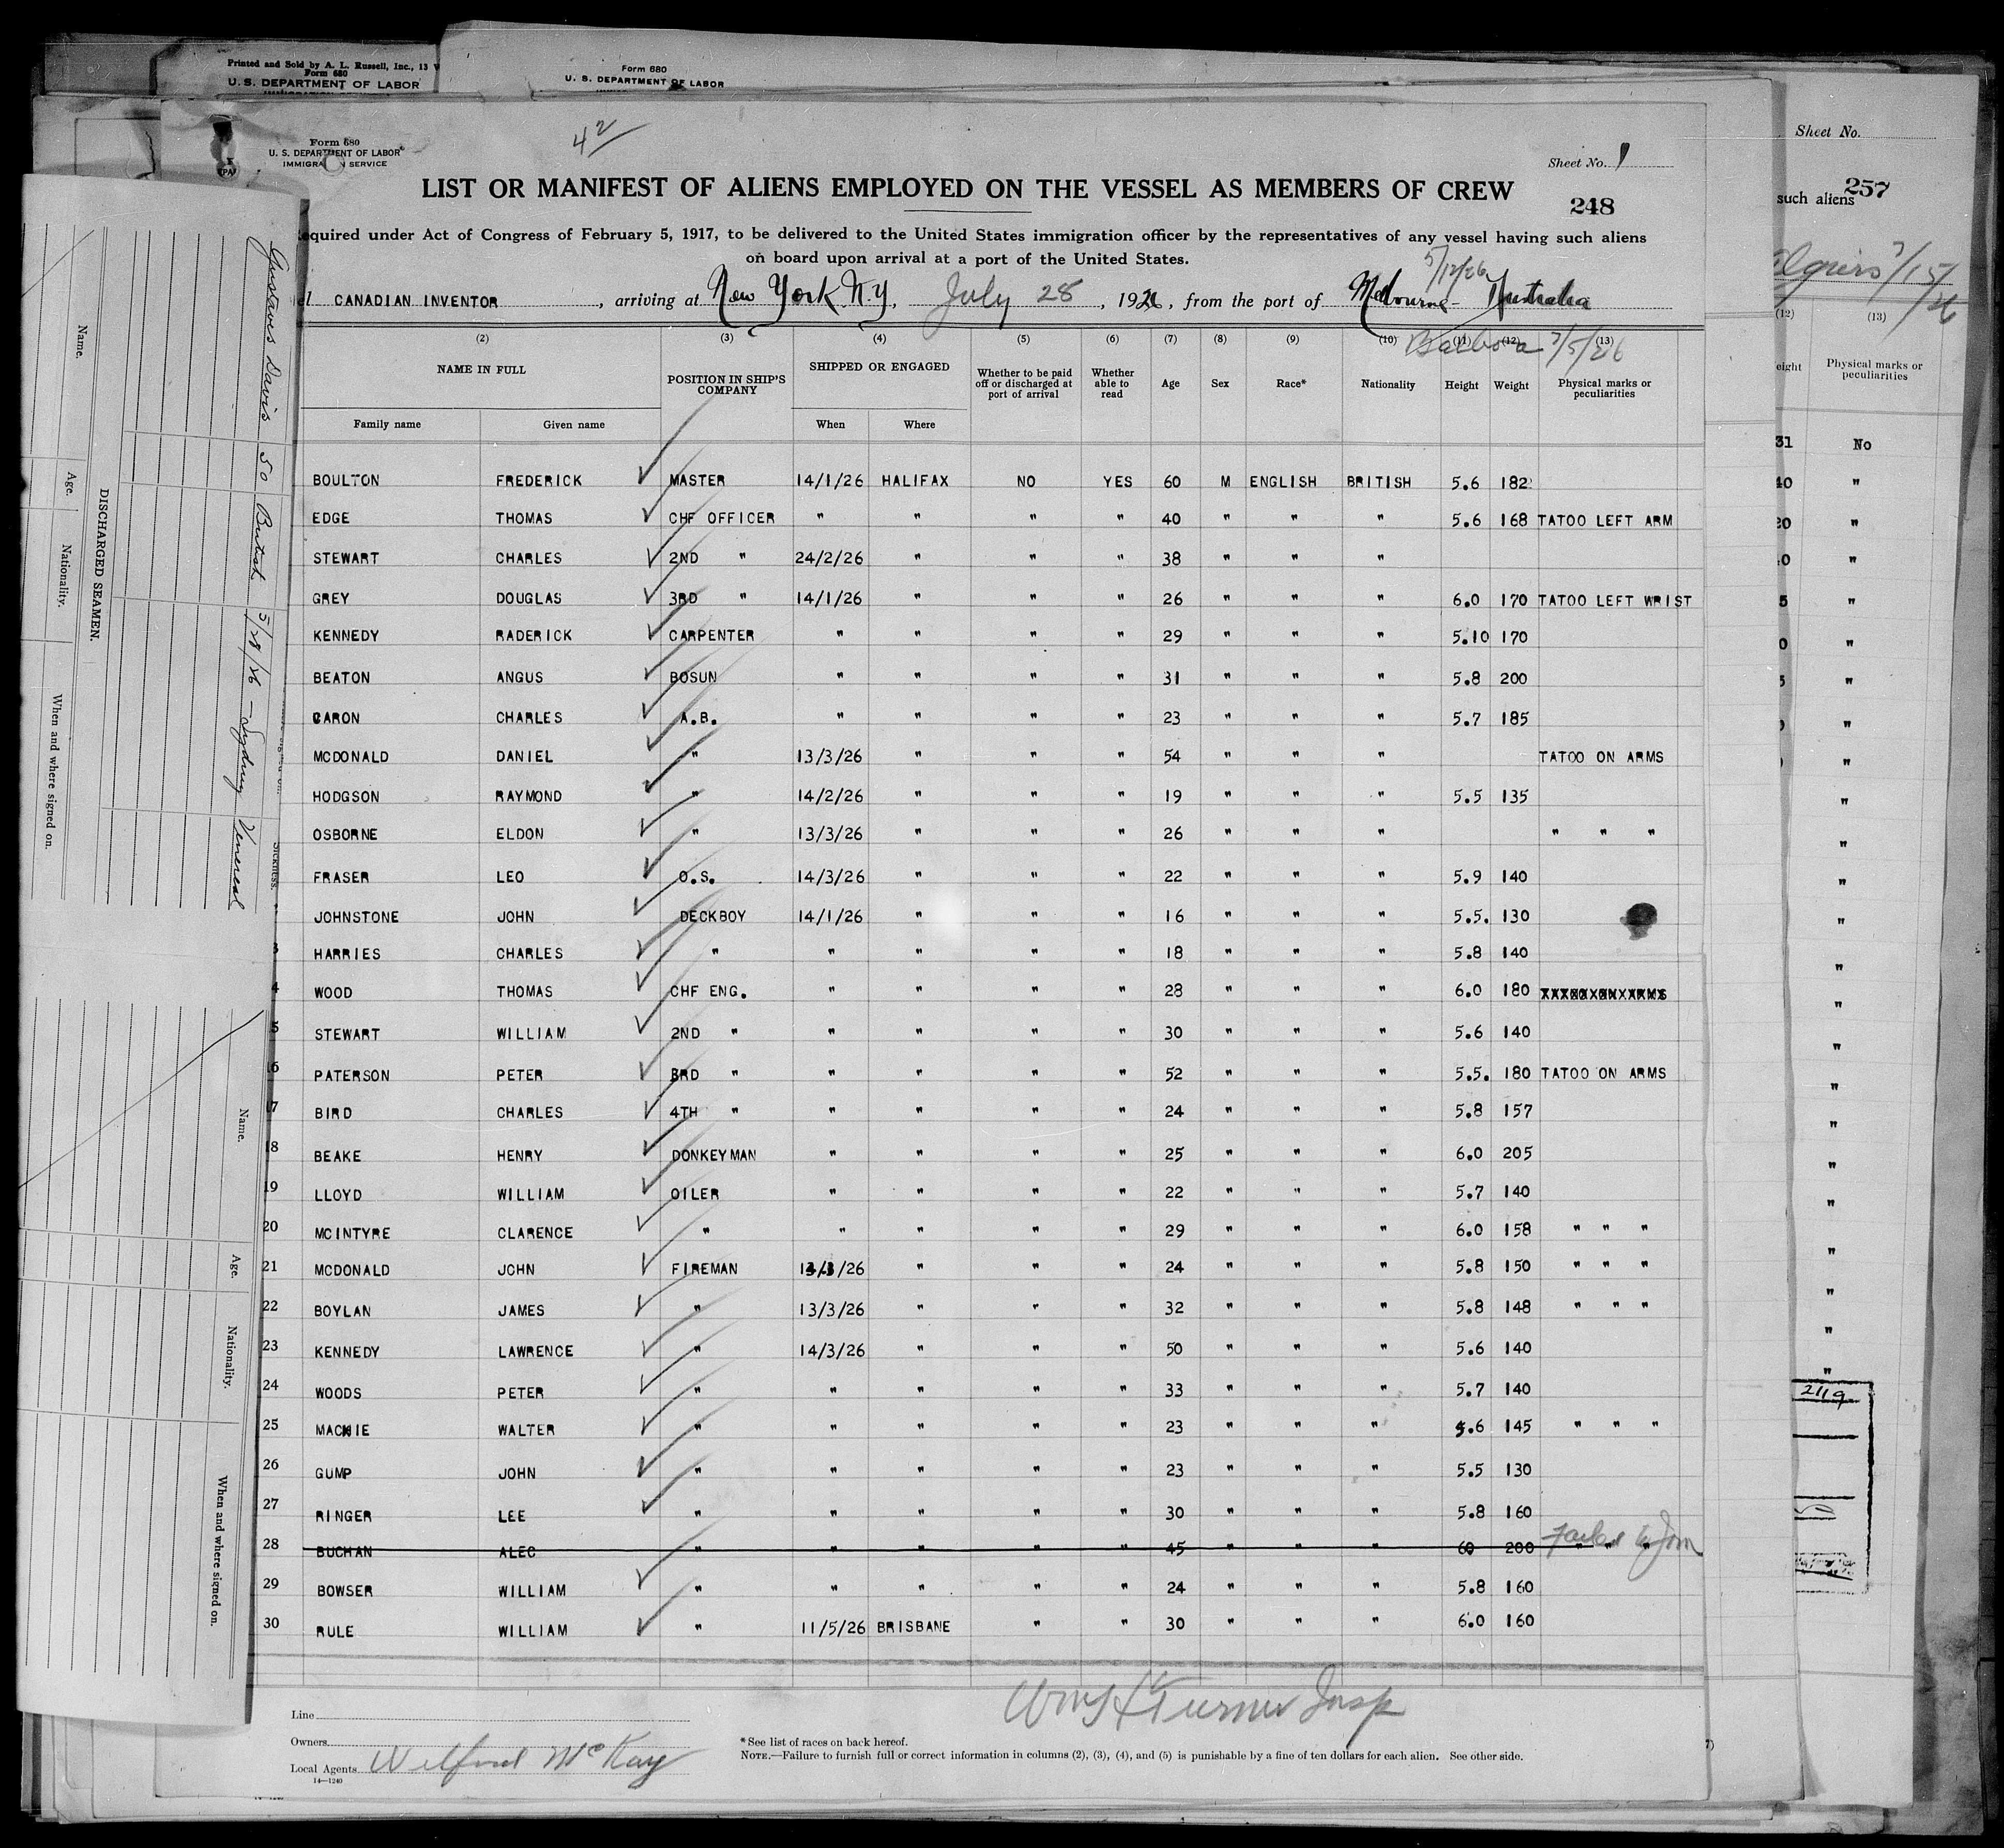 Printed and Sold by A. L. Russell, Inc., 13
Form 680
U. S. DEPARTMENT OF LABOR
Form 680
U. S. DEPARTMENT OF LABOR
Form 680
U. S. DEPARTMENT OF LABOR
IMMIGRA N SERVICE
42
Sheet No. 1
Sheet No.
LIST OR MANIFEST OF ALIENS EMPLOYED ON THE VESSEL AS MEMBERS OF CREW
248
257
such aliens
equired under Act of Congress of February 5, 1917, to be delivered to the United States immigration officer by the representatives of any vessel having such aliens
on board upon arrival at a port of the United States.
5/12/26
el CANADIAN INVENTOR, arriving at New York N.Y., July 28, 1926, from the port of Melbourne - Australia
Balboa 7/5/26
Algiers 7/15/26
(2) (3) (4) (5) (6) (7) (8) (9) (10) (11) (12) (13)
NAME IN FULL
Family name Given name
POSITION IN SHIP'S COMPANY
SHIPPED OR ENGAGED
When Where
Whether to be paid off or discharged at port of arrival
Whether able to read
Age Sex Race* Nationality Height Weight
Physical marks or peculiarities
BOULTON FREDERICK MASTER 14/1/26 HALIFAX NO YES 60 M ENGLISH BRITISH 5.6 182
EDGE THOMAS CHF OFFICER " " " " 40 " " " 5.6 168 TATOO LEFT ARM
STEWART CHARLES 2ND " 24/2/26 " " " 38 " " "
GREY DOUGLAS 3RD " 14/1/26 " " " 26 " " " 6.0 170 TATOO LEFT WRIST
KENNEDY RADERICK CARPENTER " " " " 29 " " " 5.10 170
BEATON ANGUS BOSUN " " " " 31 " " " 5.8 200
CARON CHARLES A.B. " " " " 23 " " " 5.7 185
MCDONALD DANIEL " 13/3/26 " " " 54 " " " TATOO ON ARMS
HODGSON RAYMOND " 14/2/26 " " " 19 " " " 5.5 135
OSBORNE ELDON " 13/3/26 " " " 26 " " " " " "
FRASER LEO O.S. 14/3/26 " " " 22 " " " 5.9 140
JOHNSTONE JOHN DECKBOY 14/1/26 " " " 16 " " " 5.5. 130
3 HARRIES CHARLES " " " " " 18 " " " 5.8 140
4 WOOD THOMAS CHF ENG. " " " " 28 " " " 6.0 180
5 STEWART WILLIAM 2ND " " " " " 30 " " " 5.6 140
16 PATERSON PETER 3RD " " " " " 52 " " " 5.5. 180 TATOO ON ARMS
17 BIRD CHARLES 4TH " " " " " 24 " " " 5.8 157
18 BEAKE HENRY DONKEYMAN " " " " 25 " " " 6.0 205
19 LLOYD WILLIAM OILER " " " " 22 " " " 5.7 140
20 MCINTYRE CLARENCE " " " " " 29 " " " 6.0 158 " " "
21 MCDONALD JOHN FIREMAN 13/3/26 " " " 24 " " " 5.8 150 " " "
22 BOYLAN JAMES " 13/3/26 " " " 32 " " " 5.8 148 " " "
23 KENNEDY LAWRENCE " 14/3/26 " " " 50 " " " 5.6 140
24 WOODS PETER " " " " " 33 " " " 5.7 140
25 MACKIE WALTER " " " " " 23 " " " 5.6 145 " " "
26 GUMP JOHN " " " " " 23 " " " 5.5 130
27 RINGER LEE " " " " " 30 " " " 5.8 160
28 BUCHAN ALEC " " " " " 45 " " " 60 200 " " " Failed to Join
29 BOWSER WILLIAM " " " " " 24 " " " 5.8 160
30 RULE WILLIAM " 11/5/26 BRISBANE " " 30 " " " 6.0 160
Wm H Turner Insp
Line
Owners
Local Agents Wilfred McKay
14—1240
*See list of races on back hereof.
NOTE.—Failure to furnish full or correct information in columns (2), (3), (4), and (5) is punishable by a fine of ten dollars for each alien. See other side.
DISCHARGED SEAMEN.
Name. Age. Nationality. When and where signed on.
Sickness.
Gustaves Davis 50 British 5/28/26 — Sydney Venereal
Name. Age. Nationality. When and where signed on.
(12) (13)
eight
Physical marks or peculiarities
31 No
40 "
20 "
2119